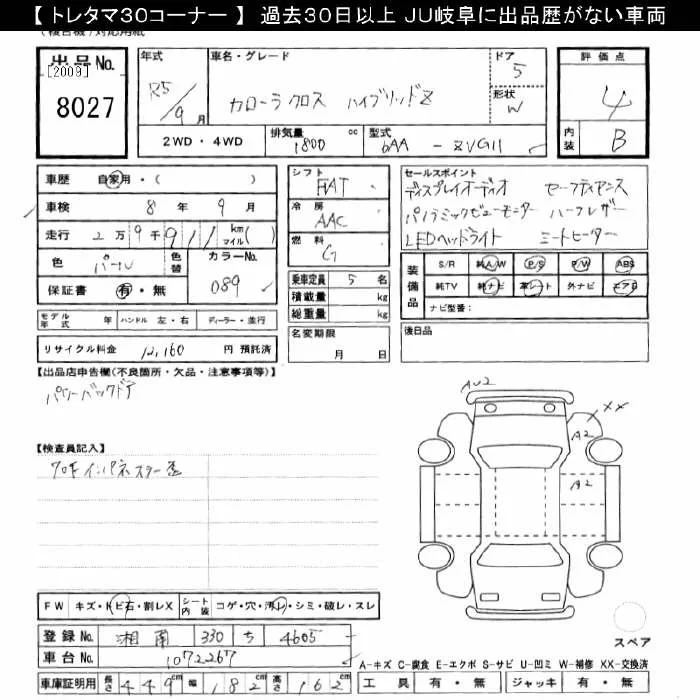 【 トレタマ30コーナー 】 過去30日以上 JU岐阜に出品歴がない車両
出品No. [2009] 8027
年式 R5/9月
車名・グレード カローラクロス ハイブリッドZ
ドア 5
形状 W
評価点 4
内装 B
2WD・4WD 排気量 1800 cc 型式 6AA - ZVG11
車歴 自家用・( )
車検 8年 9月
走行 2万9千911 km マイル( )
色 パール 色替 カラーNo. 089
保証書 有・無
シフト FAT
冷房 AAC
燃料 G
乗車定員 5 名
積載量 kg
総重量 kg
セールスポイント
ディスプレイオーディオ セーフティセンス
パノラミックビューモニター ハーフレザー
LEDヘッドライト シートヒーター
装備品 S/R 純A/W P/S P/W ABS
純TV 純ナビ 革シート 外ナビ エアB
ナビ型式:
モデル年式 年 ハンドル 左・右 ディーラー・並行
名変期限 月 日
後日品
リサイクル料金 12,160 円 預託済
【出品店申告欄(不良箇所・欠品・注意事項等)】
パワーバックドア
AU2
XX
A2
A2
【検査員記入】
フロF インパネ スター歪
FW キズ・トビ石・割レX シート内装 コゲ・穴・汚レ・シミ・破レ・スレ
登録No. 湘南 330 ち 4605
車台No. 1072267
スペア
A-キズ C-腐食 E-エクボ S-サビ U-凹ミ W-補修 XX-交換済
車庫証明用 長さ 449cm 幅 182cm 高さ 162cm
工具 有・無 ジャッキ 有・無